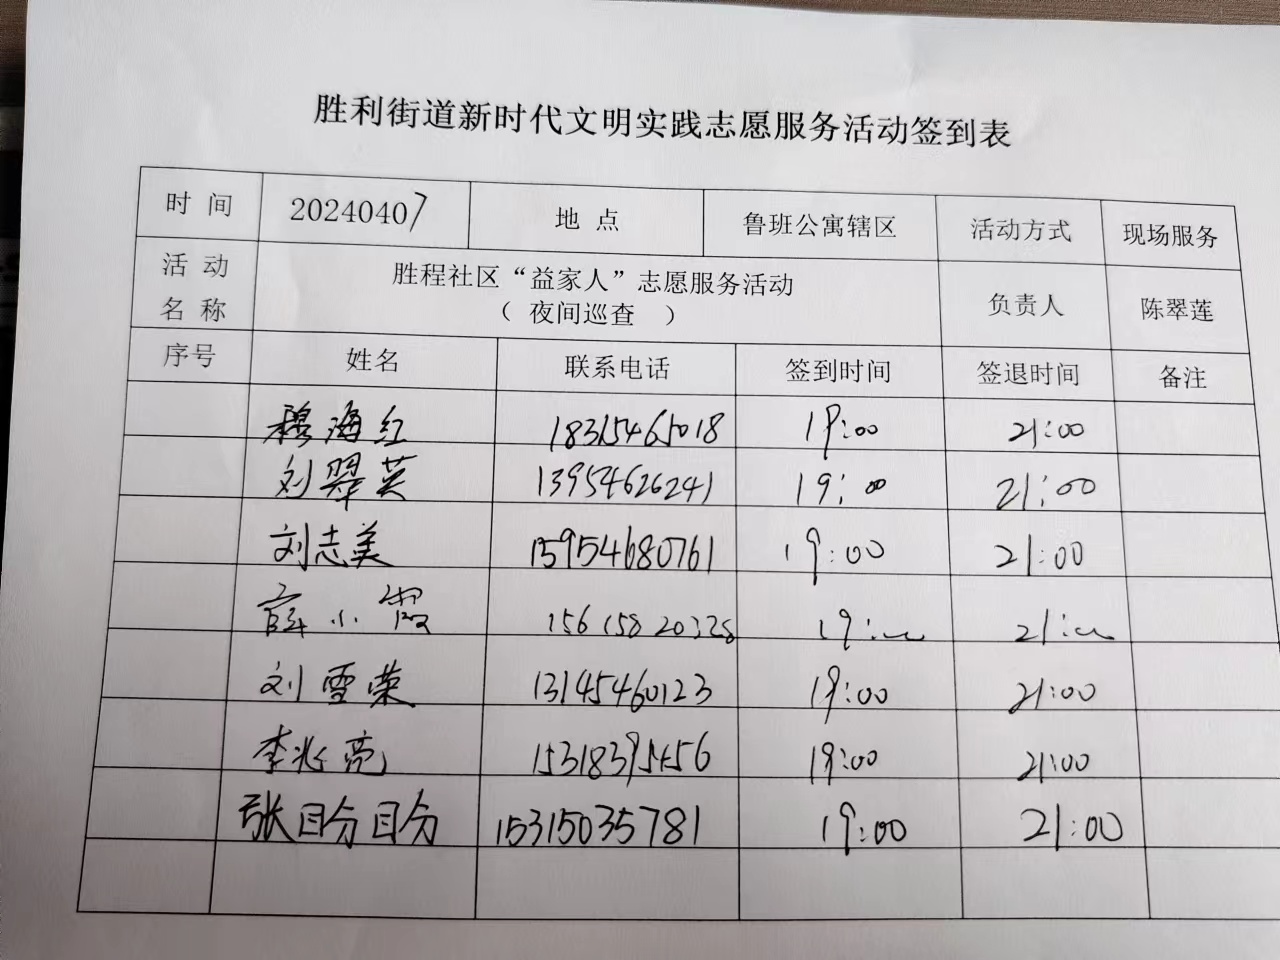 胜利街道新时代文明实践志愿服务活动签到表
时 间 20240407 地 点 鲁班公寓辖区 活动方式 现场服务
活 动 名 称 胜程社区“益家人”志愿服务活动 （ 夜间巡查 ） 负责人 陈翠莲
序号 姓名 联系电话 签到时间 签退时间 备注
穆海红 18315465018 19:00 21:00
刘翠英 13954626241 19:00 21:00
刘志美 15954680761 19:00 21:00
薛小霞 15615820328 19:00 21:00
刘雪荣 13145460123 19:00 21:00
李兆亮 15318395456 19:00 21:00
张盼盼 15315035781 19:00 21:00